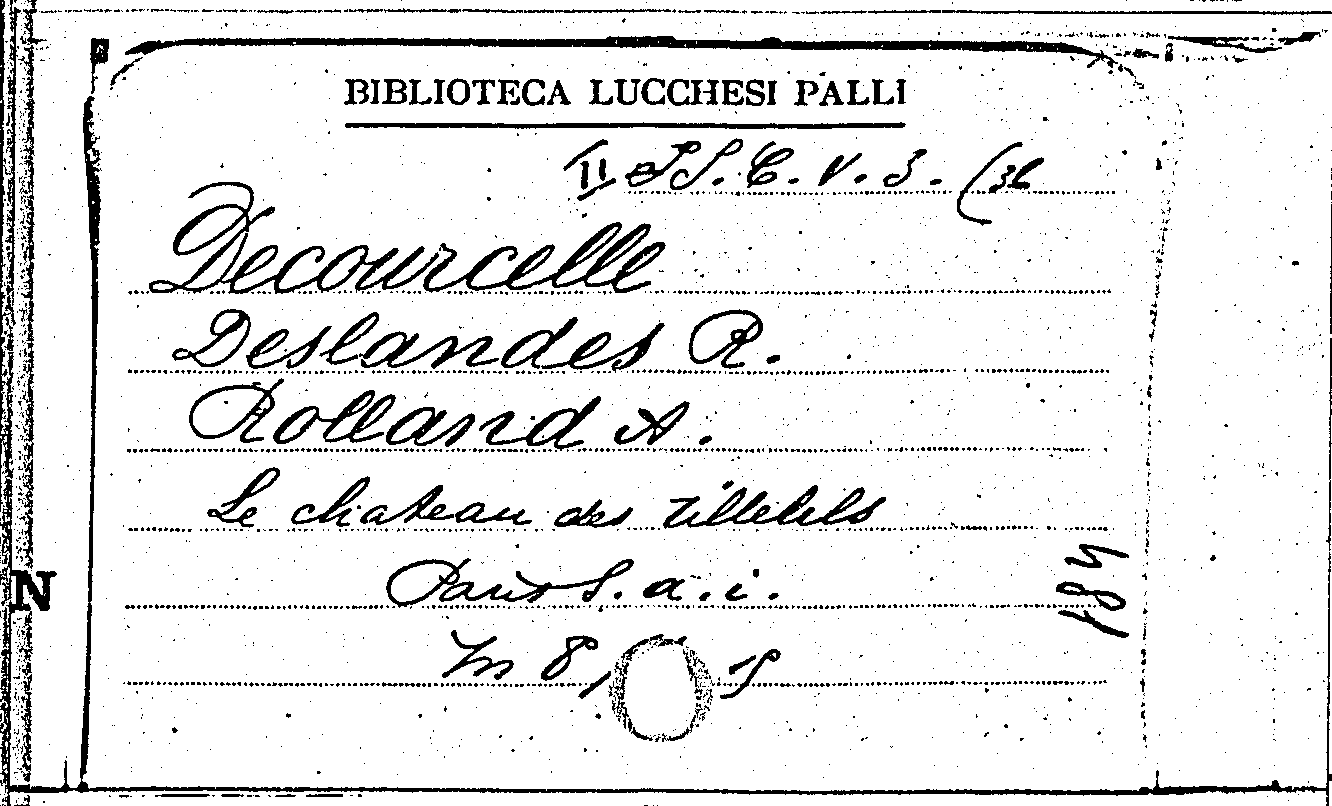 BIBLIOTECA LUCCHESI PALLI
II SS. C. V. 3. (36
Decourcelle
Deslandes R.
Rolland A.
Le chateau des Tilleuls
Paris S. a. i.
In 8,
184
N